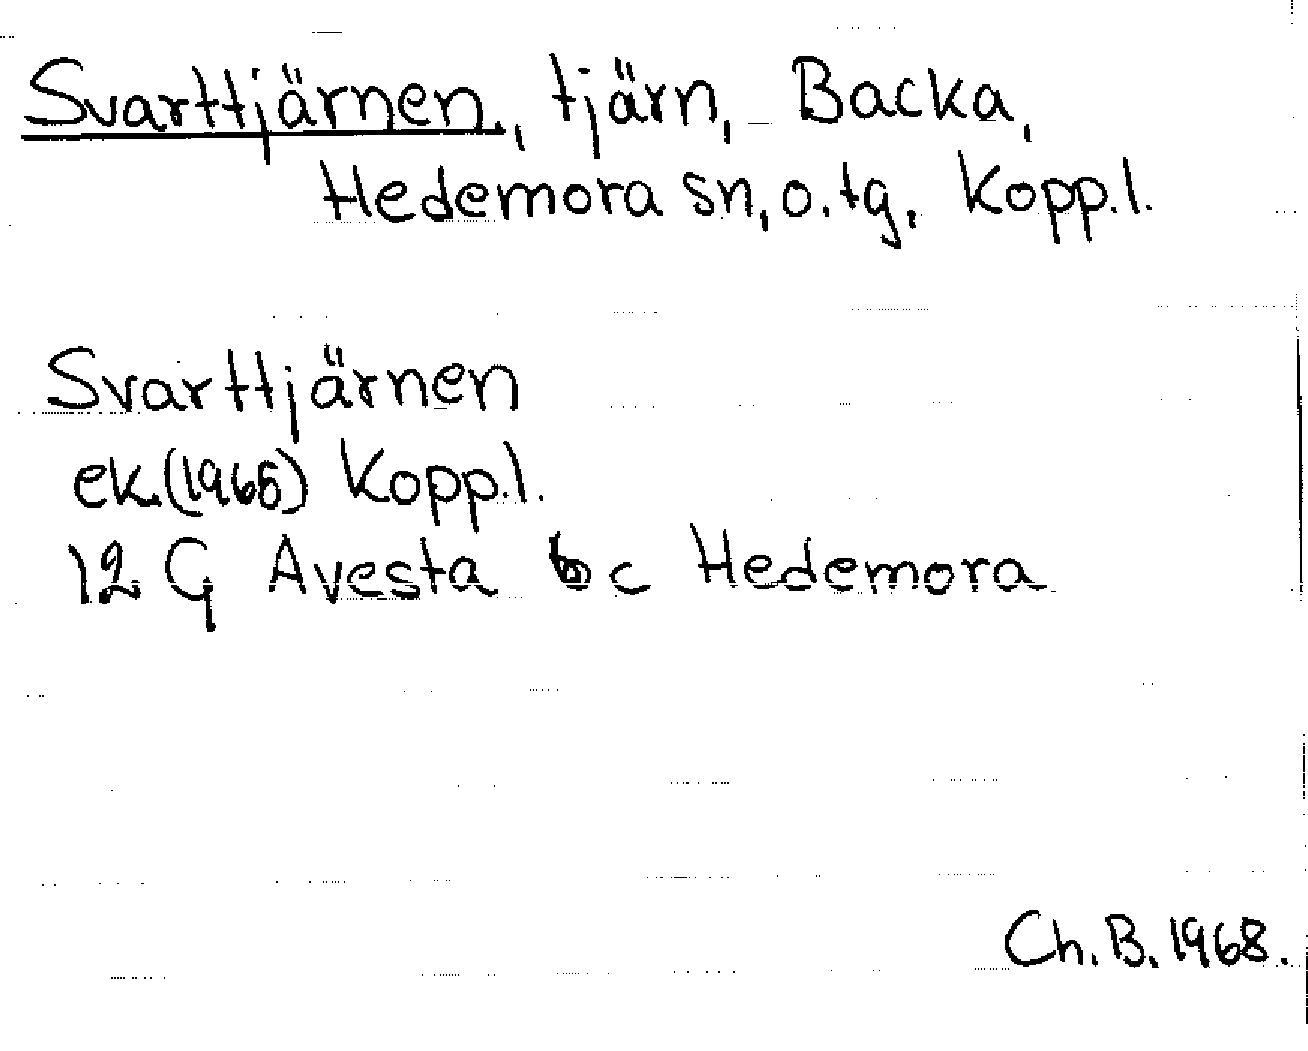 Svarttjärnen, tjärn, Backa,
Hedemora sn, o. tg, Kopp.l.
Svarttjärnen
ek.(1965) Kopp.l.
12 G Avesta b c Hedemora
Ch. B. 1968.